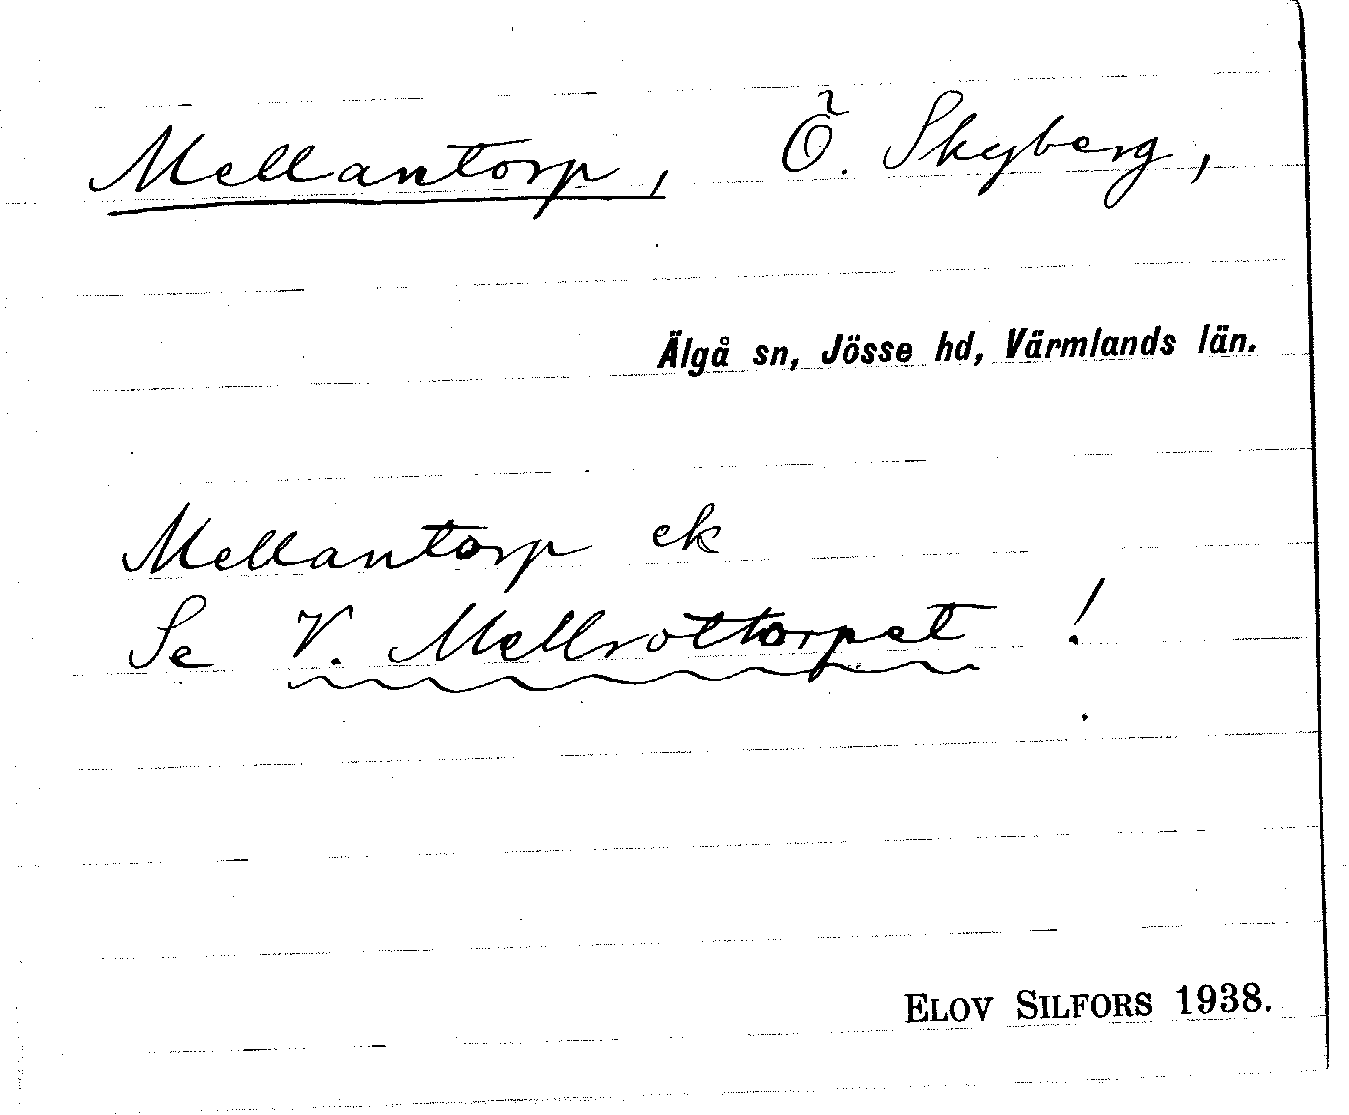 Mellantorp, Ö. Skyberg,
Älgå sn, Jösse hd, Värmlands län.
Mellantorp ek
Se V. Mellrottorpet !
ELOV SILFORS 1938.